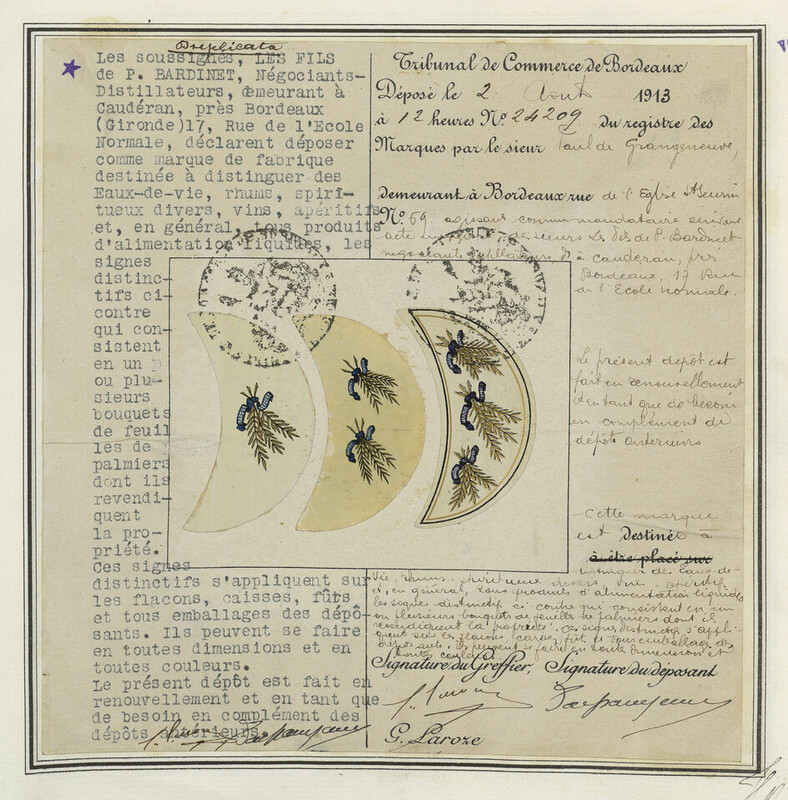 Duplicata
Les soussignés, LES FILS
de P. BARDINET, Négociants-
Distillateurs, demeurant à
Caudéran, près Bordeaux
(Gironde)17, Rue de l'Ecole
Normale, déclarent déposer
comme marque de fabrique
destinée à distinguer des
Eaux-de-vie, rhums, spiri-
tueux divers, vins, apéritifs
et, en général, tous produits
d'alimentation liquides, les
signes
distinc-
tifs ci-
contre
qui con-
sistent
en un
ou plu-
sieurs
bouquets
de feuil
les de
palmiers
dont ils
revendi-
quent
la pro-
priété.
Ces signes
distinctifs s'appliquent sur
les flacons, caisses, fûts
et tous emballages des dépo-
sants. Ils peuvent se faire
en toutes dimensions et en
toutes couleurs.
Le présent dépôt est fait en
renouvellement et en tant que
de besoin en complément des
dépôts antérieurs.
Tribunal de Commerce de Bordeaux
Déposé le 2 Aout 1913
à 12 heures No. 24209 du registre des
Marques par le sieur Paul de Grangeneuve,
demeurant à Bordeaux rue de l'Eglise St Seurin
No. 69, agissant comme mandataire suivant
acte des sieurs Les Fils de P. Bardinet
négociants distillateurs, à Cauderan, près
Bordeaux, 17 Rue
de l'Ecole normale.
Le présent dépôt est
fait en renouvellement
et en tant que de besoin
en complément de
dépôts antérieurs
Cette marque
est Destinée à
à être placé sur
distinguer des Eaux-de-
vie, rhums, spiritueux divers, vins, apéritifs
et, en général, tous produits d'alimentation liquides
les signes distinctifs ci contre qui consistent en un
ou plusieurs bouquets de feuilles de palmiers dont ils
revendiquent la propriété. Ces signes distinctifs s'appli-
quent sur les flacons, caisses, fûts et tous emballages des
déposants. Ils peuvent se faire en toutes dimensions et
toutes couleurs
Signature du Greffier, Signature du déposant
G. Laroze